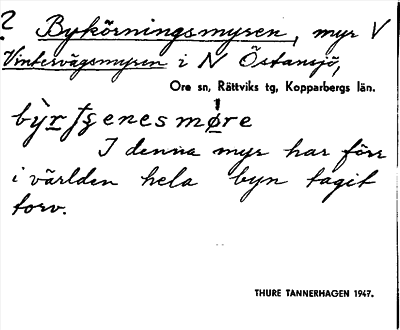 ? Bykörningsmyren, myr V
Vintervägsmyren i N Östansjö,
Ore sn, Rättviks tg, Kopparbergs län.
I denna myr har förr
i världen hela byn tagit
torv.
THURE TANNERHAGEN 1947.